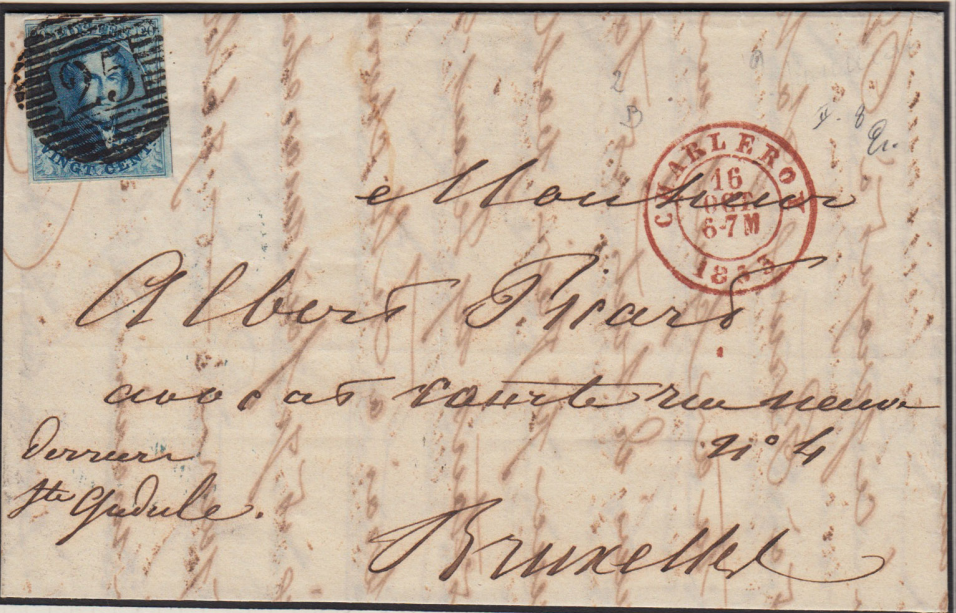 25
VINGT CENT.
2
B
CHARLEROY
16
OCT.
6-7 M
1853
Monsieur
Albert Picard
avocat courte rue neuve
n° 4
derriere
Ste Gudule.
Bruxelles